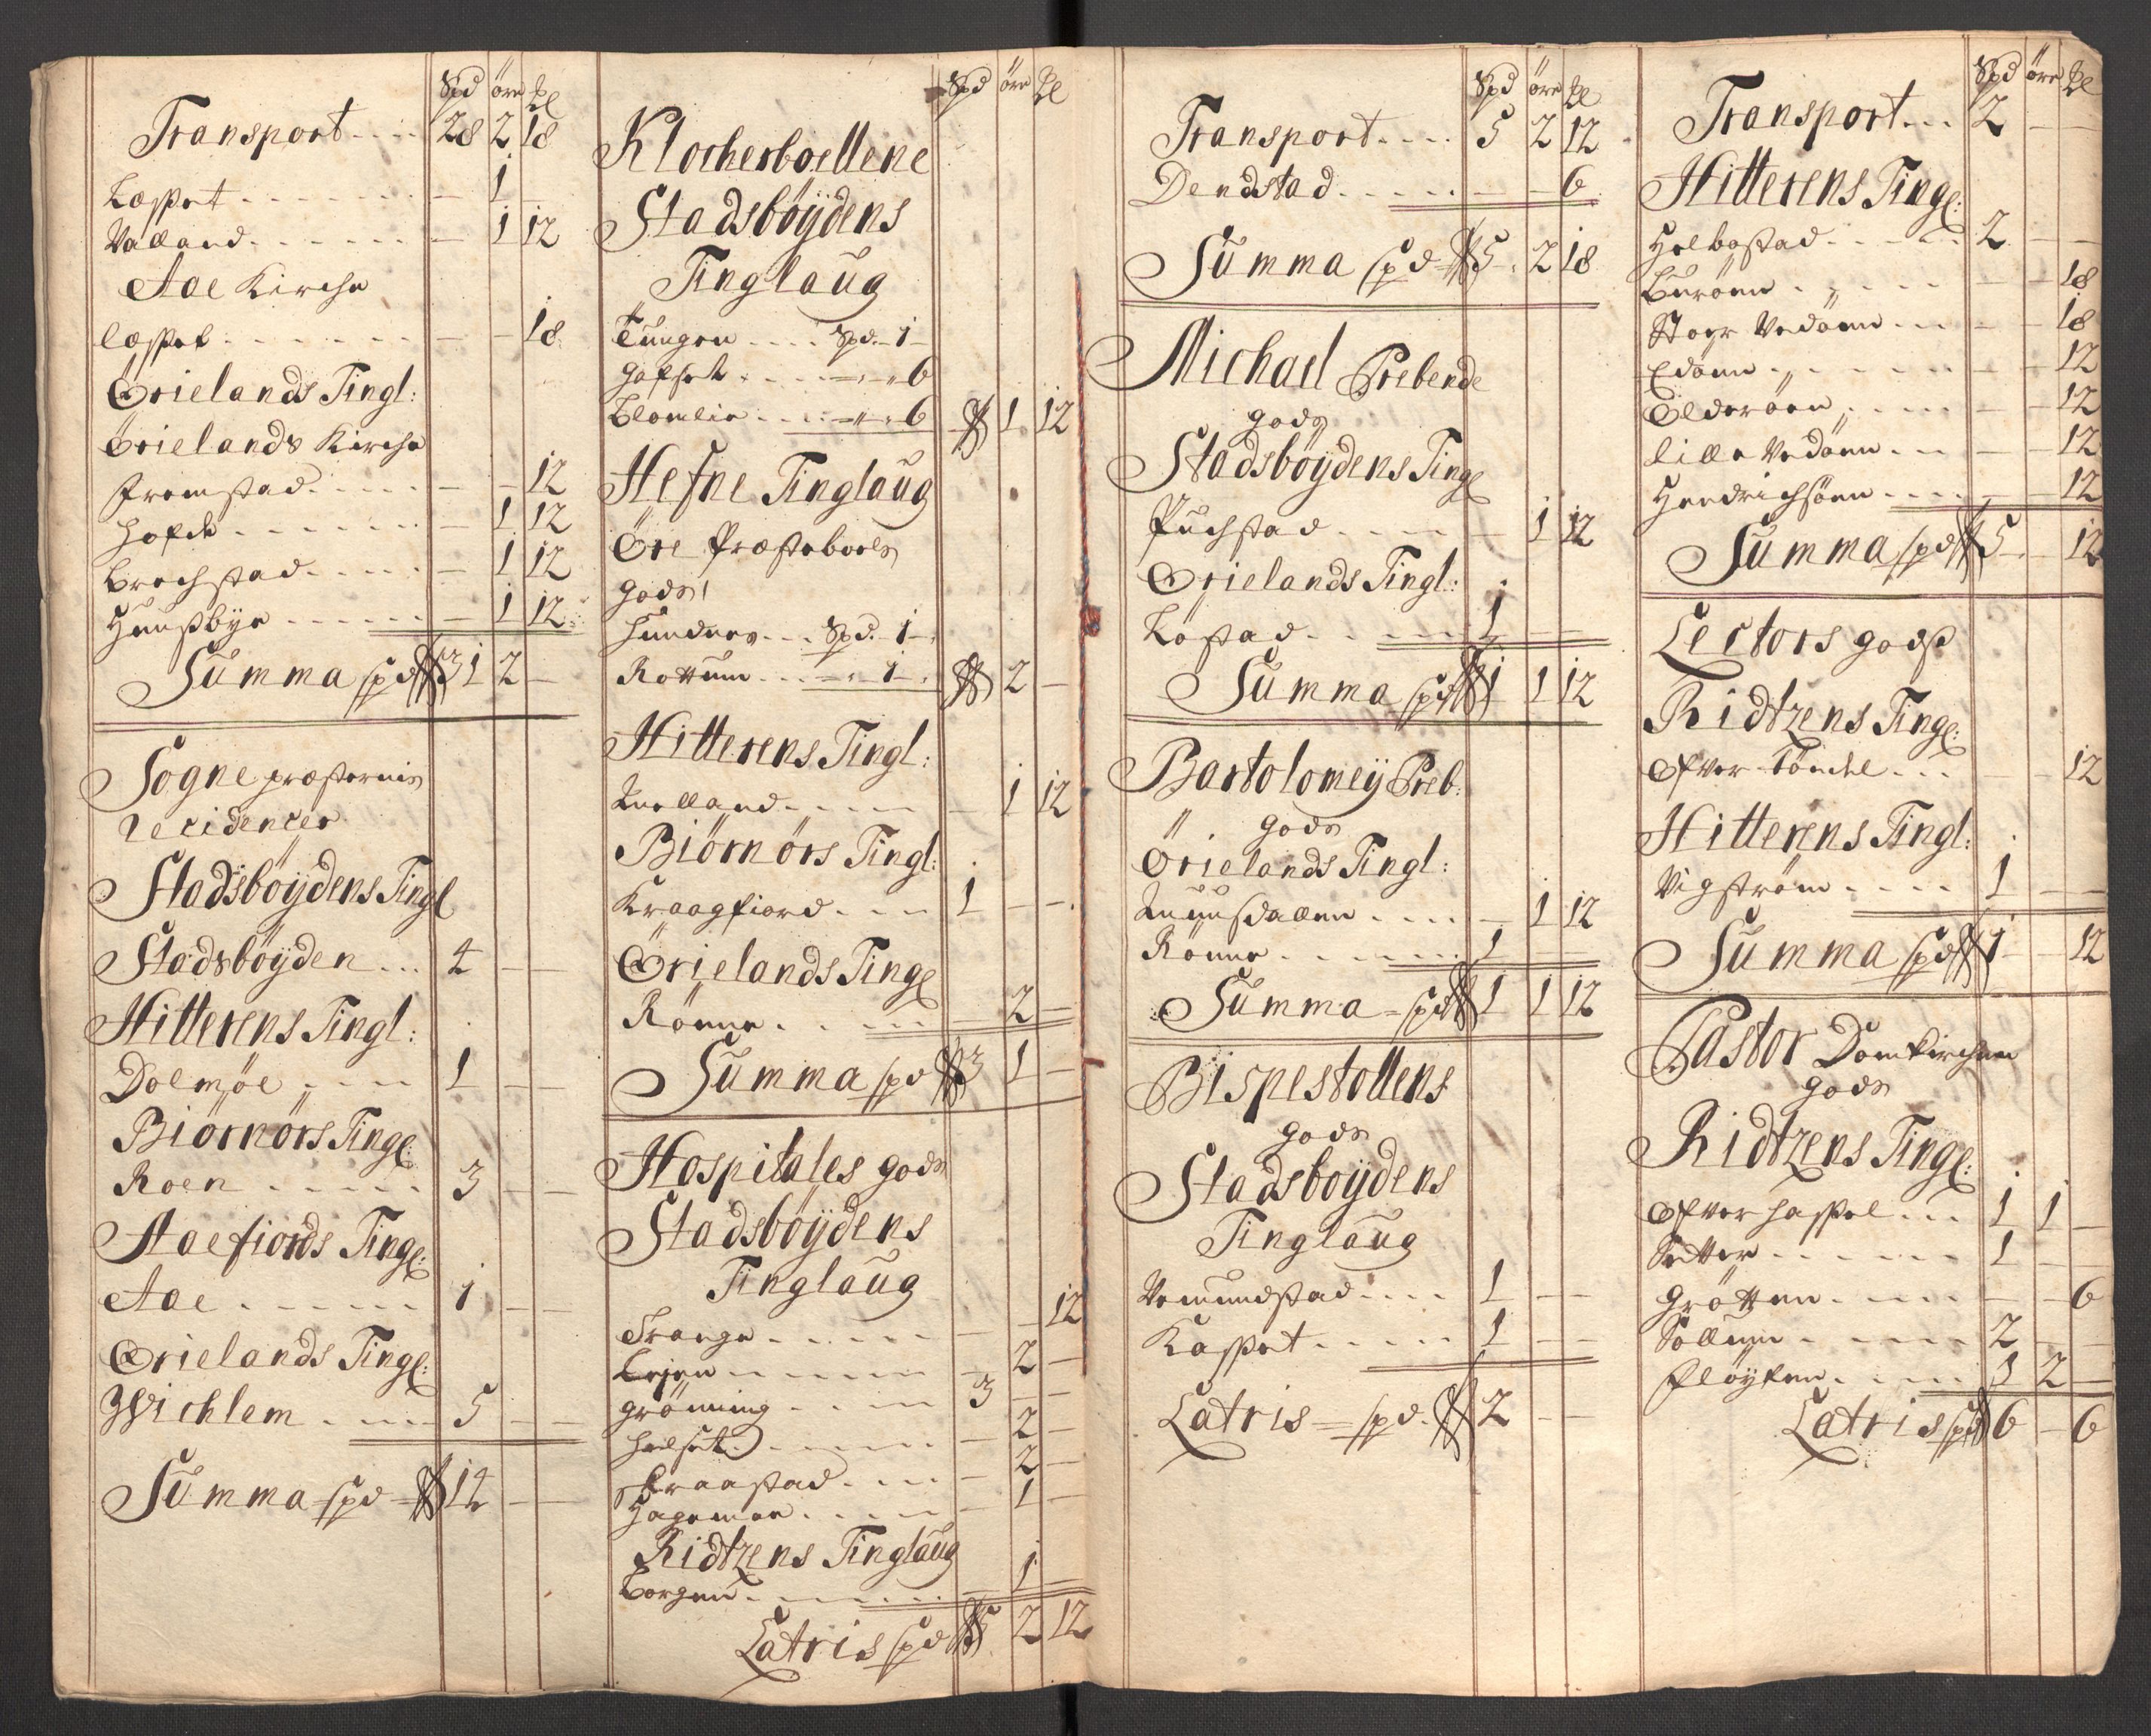 Spd öre
Transport .... 28 2 18
Læsset ....... – 1
Valland ...... – 1 12
Aae Kirche
læsset ....... – – 18
Örielands Tingl:
Örielands Kirche
Fremstad ..... – – 12
Hofde ...... – 1 12
Brechstad .... – 1 12
Huusbye ...... – 1 12
Summa spd 31 2 –
Sogne præsternis
recidencer
Stadsböÿdens Tingl
Stadsböÿden ... 4 – –
Hitterens Tingl:
Dolmöe .... 1 – –
Biörnörs Tingl:
Roen ..... 3 – –
Aaefiords Tingl:
Aae ...... 1 – –
Örielands Tingl:
Wichlem .... 5 – –
Summa spd 14 – –
Spd öre
Klocherboellene
Stadsböÿdens
Tinglaug
Tungen .... Spd. 1 –
6
6 1 12
Hefne Tinglaug
Öre Præsteboels
gods
Spd. 1 –
Rottum ..... 1 – 2 –
Hitterens Tingl:
– 1 12
Biörnörs Tingl:
Kraagfiord .... 1 – –
Örielands Tingl
Rönne ...... – 2 –
Summa spd 3 1 –
Hospitales gods
Stadsböÿdens
Tinglaug
– – 12
– 2 –
grönning .... 3 – –
– 2 –
– 2 –
Hagemoe ..... – 1 –
Ridtzens Tinglaug
Borgen ...... – 1 –
Latris spd 5 2 12
Spd öre
Transport .... 5 2 12
Dendstad ..... – – 6
Summa spd 5 2 18
Michael Prebende
gods
Stadsböÿdens Tingl
Puchstad .... – 1 12
Örielands Tingl:
Löstad ...... 1 – –
Summa spd 1 1 12
Bartolomeÿ Preb:
gods
Örielands Tingl:
– 1 12
Rönne ...... 1 – –
Summa spd 1 1 12
Bispestollens
gods
Stadsboÿdens
Tinglaug
Vemundstad .... 1 – –
Kasset ..... 1 – –
Latris spd. 2 – –
Spd öre
Transport ... 2 – –
Hitterens Tingl:
Helbostad ..... 2 – –
Buröen ..... – – 18
Stoer Vedöen ... – – 18
Edöen ...... – – 12
Ulderöen .... – – 12
lille Vedöen ... – – 12
Hendrichsöen .... – – 12
Summa spd 5 – 12
Lectors gods
Ridtzens Tingl:
Ofver Töndel ... – – 12
Hitterens Tingl:
Vigström .... 1 – –
Summa spd 1 – 12
Pastor Domkirchen
gods
Ridtzens Tingl:
Ofver hassel ... 1 1 –
Setter ...... 1 – –
Grötten ..... – – 6
Sollum ..... 2 – –
Flöÿten ..... 1 2 –
Latris spd 6 – 6